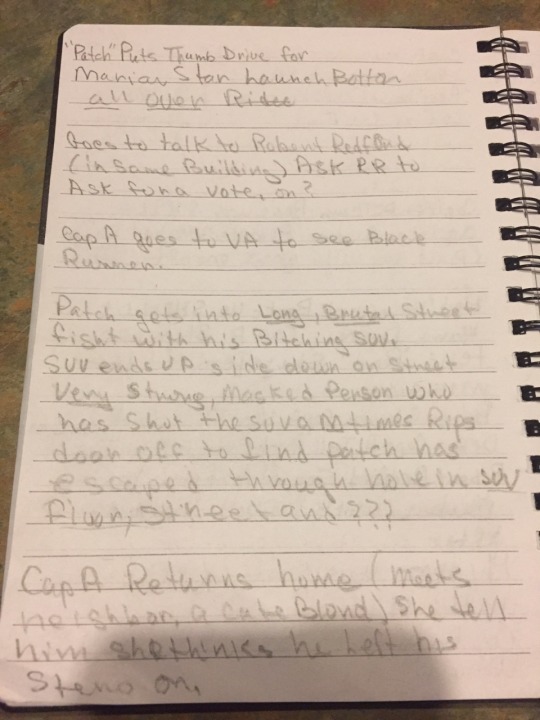 "Patch" Puts Thumb Drive for
Marian Star Launch Botton
all over Ridee
Goes to talk to Robert Redford
(in same Building) Ask RR to
Ask for a vote, on?
Cap A goes to VA to see Black
Runner.
Patch gets into Long, Brutal Street
fight with his Bitching SUV.
SUV ends UP side down on Street
Very Strong, Masked Person who
has Shot the SUV a M times Rips
door off to find patch has
escaped through hole in SUV
floor, street and ???
Cap A Returns home (meets
neighbor, a cute Blond) She tell
him she thinks he left his
Steno on.